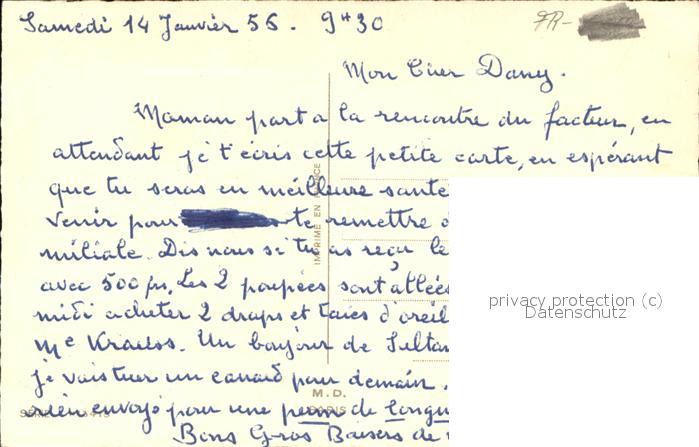 Samedi 14 Janvier 56. 9h30
FR-
Mon Cher Dany.
Maman part a la rencontre du facteur, en
attendant je t'écris cette petite carte, en espérant
que tu seras en meilleure santé
venir pour te remettre
miliale. Dis nous si tu as reçu le
avec 500 frs. Les 2 poupées sont allées
midi acheter 2 draps et taies d'oreil
Me Krauss. Un bonjour de Sultan
je vais tuer un canard pour demain.
rien envoyé pour une panne de longu
Bons Gros Baisers de
IMPRIMÉ EN FRANCE
M.D.
PARIS
privacy protection (c)
Datenschutz